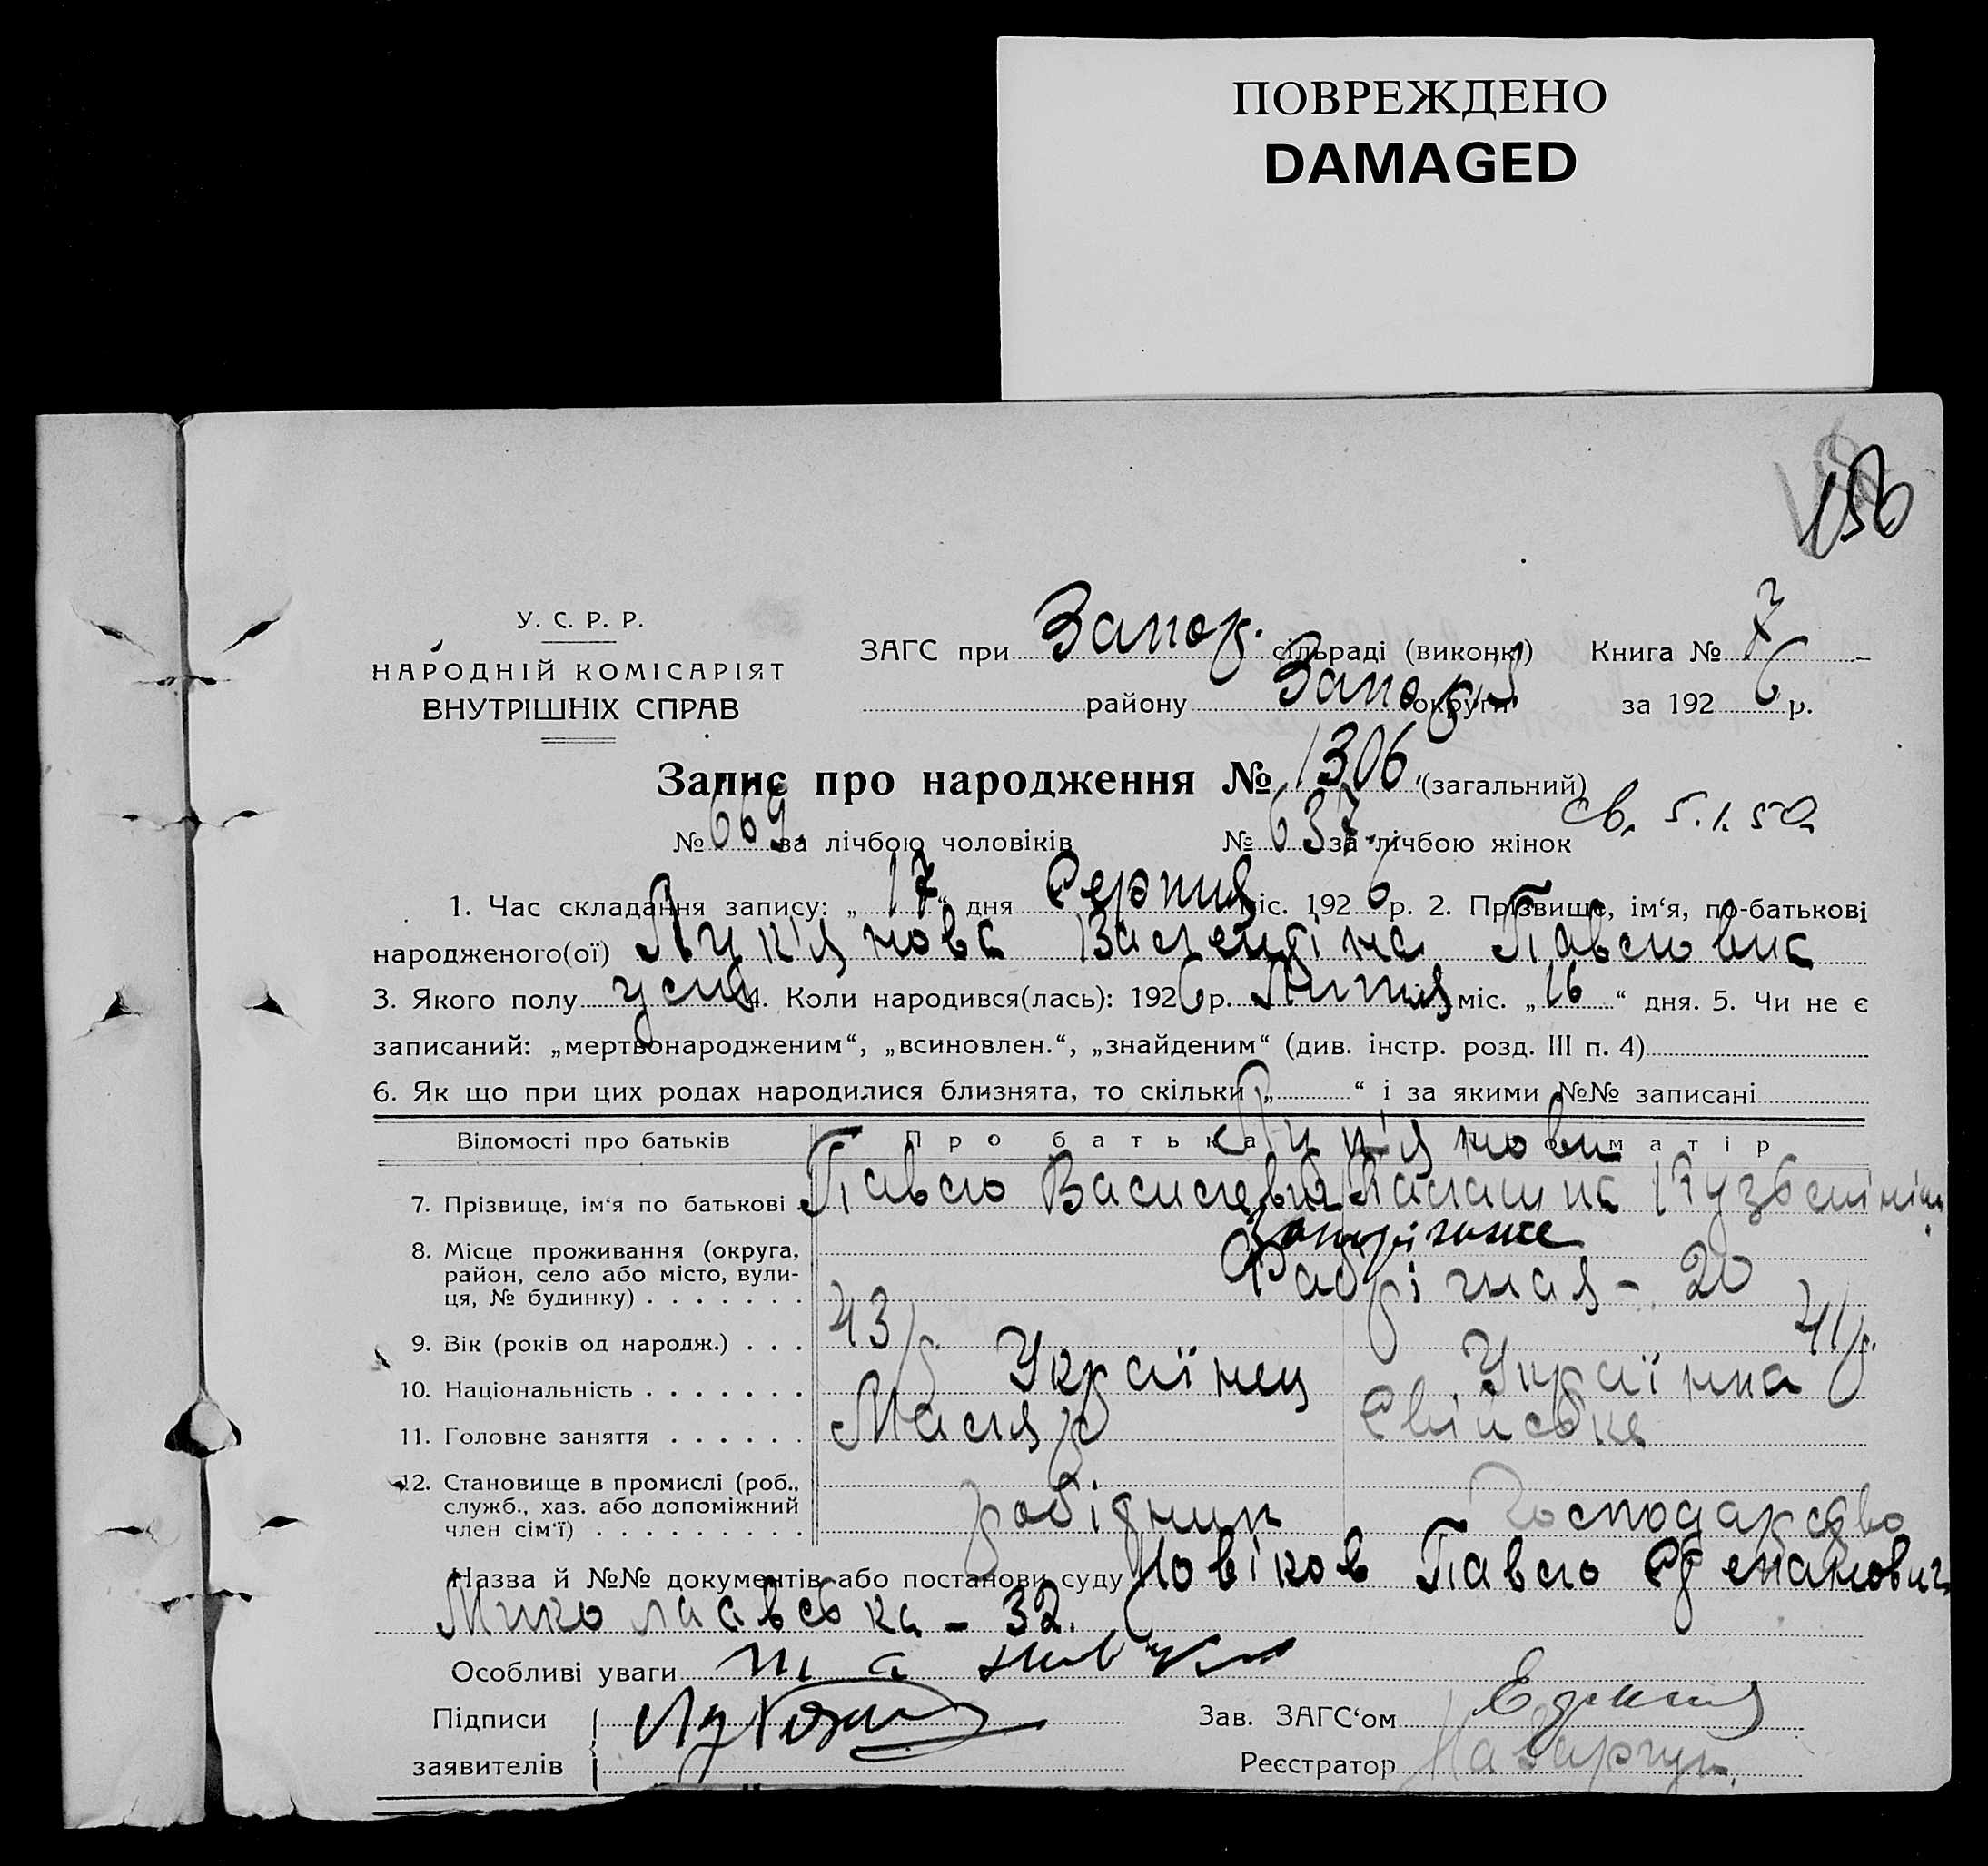 ПОВРЕЖДЕНО
DAMAGED
У. С. Р. Р.
НАРОДНІЙ КОМІСАРІЯТ
ВНУТРІШНІХ СПРАВ
ЗАГС при Запор. сільраді (виконк.) Книга № 7
району Запор округи за 1926 р.
Запис про народження № 1306 (загальний)
№ 669 за лічбою чоловіків № 637 за лічбою жінок
св. 5.1.50
1. Час складання запису: „17“ дня Серпня міс. 1926 р. 2. Прізвище, ім‘я, по-батькові
народженого(ої) Лук'янова Валентіна Павловна
3. Якого полу 4. Коли народився(лась): 1926 р. Липня міс. „16“ дня. 5. Чи не є
записаний: „мертвонародженим“, „всиновлен.“, „знайденим“ (див. інстр. розд. III п. 4)
6. Як що при цих родах народилися близнята, то скільки „ “ і за якими №№ записані
Відомості про батьків Про батька матір
Лук'янови
7. Прізвище, ім‘я по батькові Павло Василевич Палашка
8. Місце проживання (округа, район, село або місто, вулиця, № будинку) Запоріжже
Фабрічная - 20
9. Вік (років од народж.) 43 р. 41 р.
10. Національність Українец Українка
11. Головне заняття Маляр Свійське
12. Становище в промислі (роб., служб., хаз. або допоміжний член сім‘ї) робідник господарство
Назва й №№ документів або постанови суду Новіков Павло
Миколаавська - 32.
Особливі уваги
Підписи
заявителів
Зав. ЗАГС‘ом
Реєстратор